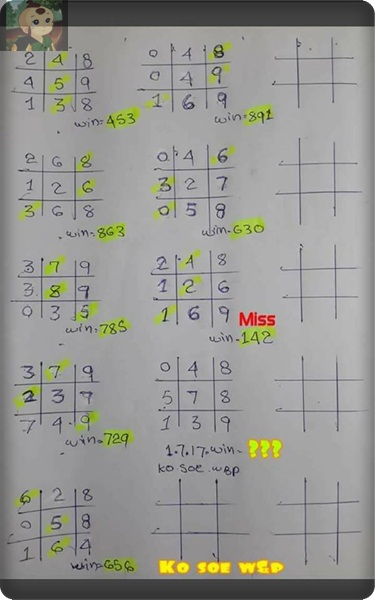 2 4 8
4 5 9
1 3 8
win=453
0 4 8
0 4 9
1 6 9
win=891
2 6 8
1 2 6
3 6 8
win=863
0 4 6
3 2 7
0 5 8
win=630
3 7 9
3 8 9
0 3 5
win=785
2 4 8
1 2 6
1 6 9
Miss
win=142
3 7 9
2 3 7
7 4 9
win=729
0 4 8
5 7 8
1 3 9
1.7.17.win= ???
KO SOE W&P
6 2 8
0 5 8
1 6 4
win=656
Ko SOE W&P